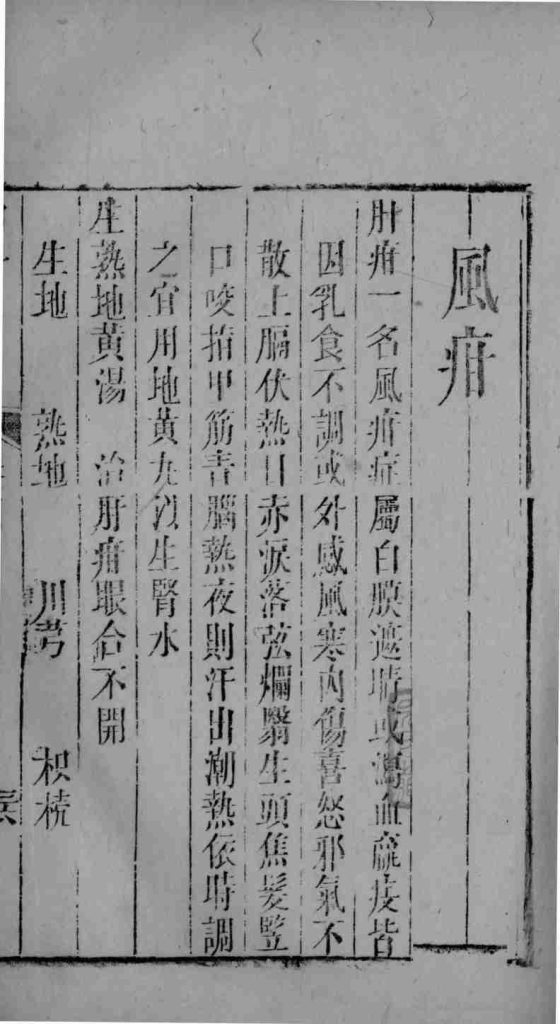 風疳
肝疳一名風疳症屬白膜遮睛或瀉血羸痩皆
因乳食不調或外感風寒內傷喜怒邪氣不
散上膈伏熱目赤淚落弦爛翳生頭焦髮竪
口咬指甲筋青腦熱夜則汗出潮熱依時調
之宜用地黃丸以生腎水
生熟地黃湯　治肝疳眼合不開
生地　熟地　川芎　枳梳